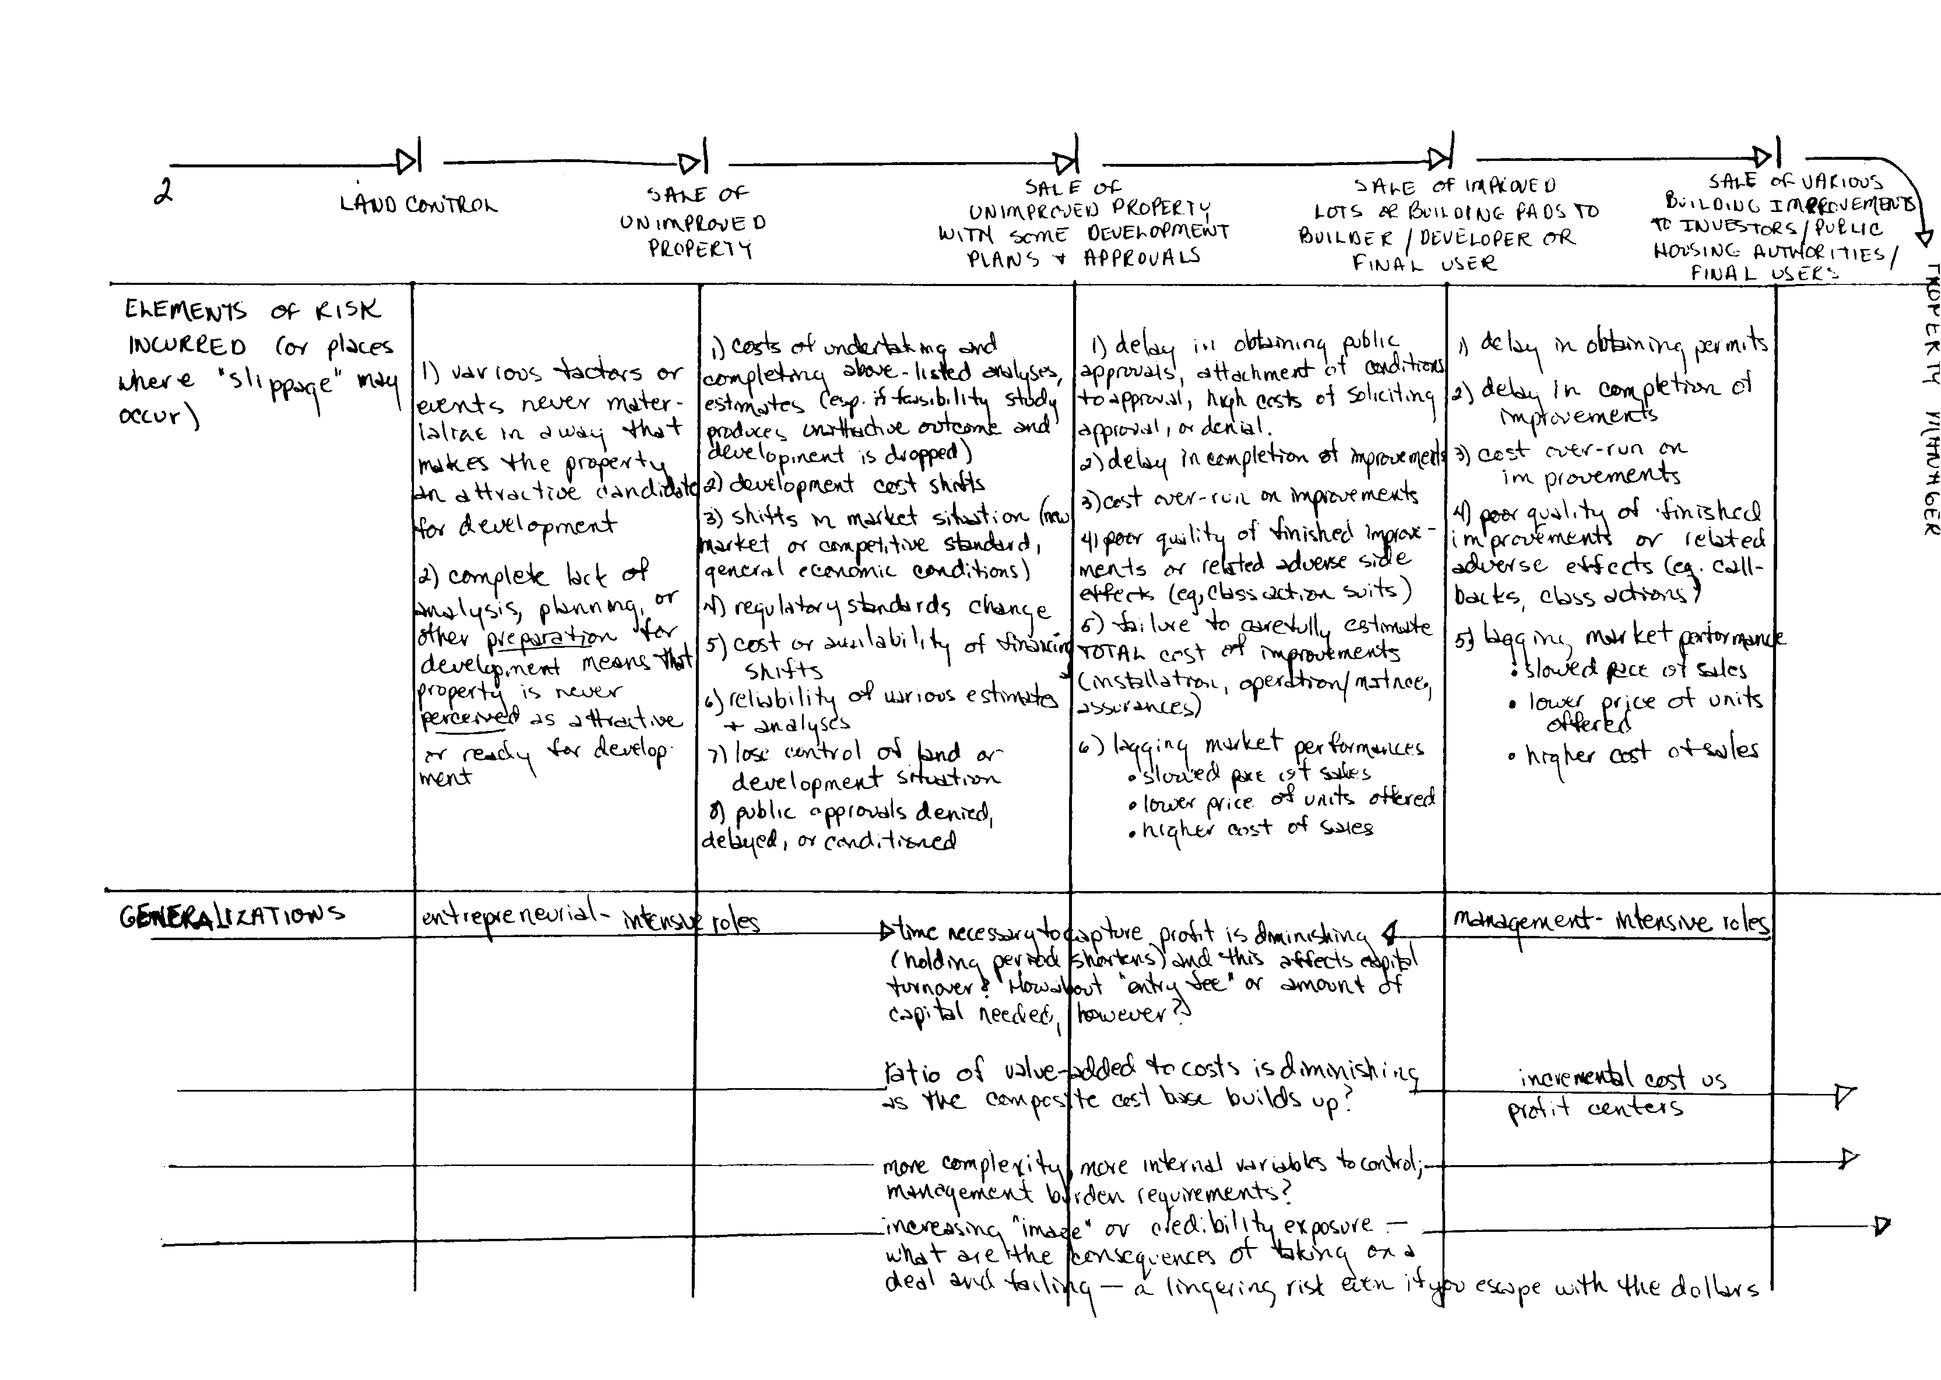 2
LAND CONTROL
SALE OF
UNIMPROVED
PROPERTY
SALE OF
UNIMPROVED PROPERTY
WITH SOME DEVELOPMENT
PLANS + APPROVALS
SALE OF IMPROVED
LOTS OR BUILDING PADS TO
BUILDER / DEVELOPER OR
FINAL USER
SALE OF VARIOUS
BUILDING IMPROVEMENTS
TO INVESTORS / PUBLIC
HOUSING AUTHORITIES /
FINAL USERS
PROPERTY MANAGER
ELEMENTS OF RISK
INCURRED (or places
where "slippage" may
occur)
1) various factors or
events never mater-
ialize in a way that
makes the property
an attractive candidate
for development
2) complete lack of
analysis, planning, or
other preparation for
development means that
property is never
perceived as attractive
or ready for develop-
ment
1) costs of undertaking and
completing above-listed analyses,
estimates (esp. if feasibility study
produces unattractive outcome and
development is dropped)
2) development cost shifts
3) shifts in market situation (new
market or competitive standard,
general economic conditions)
4) regulatory standards change
5) cost or availability of financing
shifts
6) reliability of various estimates
+ analyses
7) lose control of land or
development situation
8) public approvals denied,
delayed, or conditioned
1) delay in obtaining public
approvals, attachment of conditions
to approval, high costs of soliciting
approval, or denial.
2) delay in completion of improvements
3) cost over-run on improvements
4) poor quility of finished improve-
ments or related adverse side
effects (eg, class action suits)
5) failure to carefully estimate
TOTAL cost of improvements
(installation, operation/mntnce,
assurances)
6) lagging market performances
• slowed pace of sales
• lower price of units offered
• higher cost of sales
1) delay in obtaining permits
2) delay in completion of
improvements
3) cost over-run on
improvements
4) poor quality of finished
improvements or related
adverse effects (eg. call-
backs, class actions)
5) lagging market performance
• slowed pace of sales
• lower price of units
offered
• higher cost of sales
GENERALIZATIONS
entrepreneurial-intensive roles
time necessary to capture profit is diminishing
(holding period shortens) and this affects capital
turnover? How about "entry fee" or amount of
capital needed, however?
management-intensive roles
ratio of value-added to costs is diminishing
as the composite cost base builds up?
incremental cost vs
profit centers
more complexity, more internal variables to control;
management burden requirements?
increasing "image" or credibility exposure —
what are the consequences of taking on a
deal and failing — a lingering risk even if you escape with the dollars